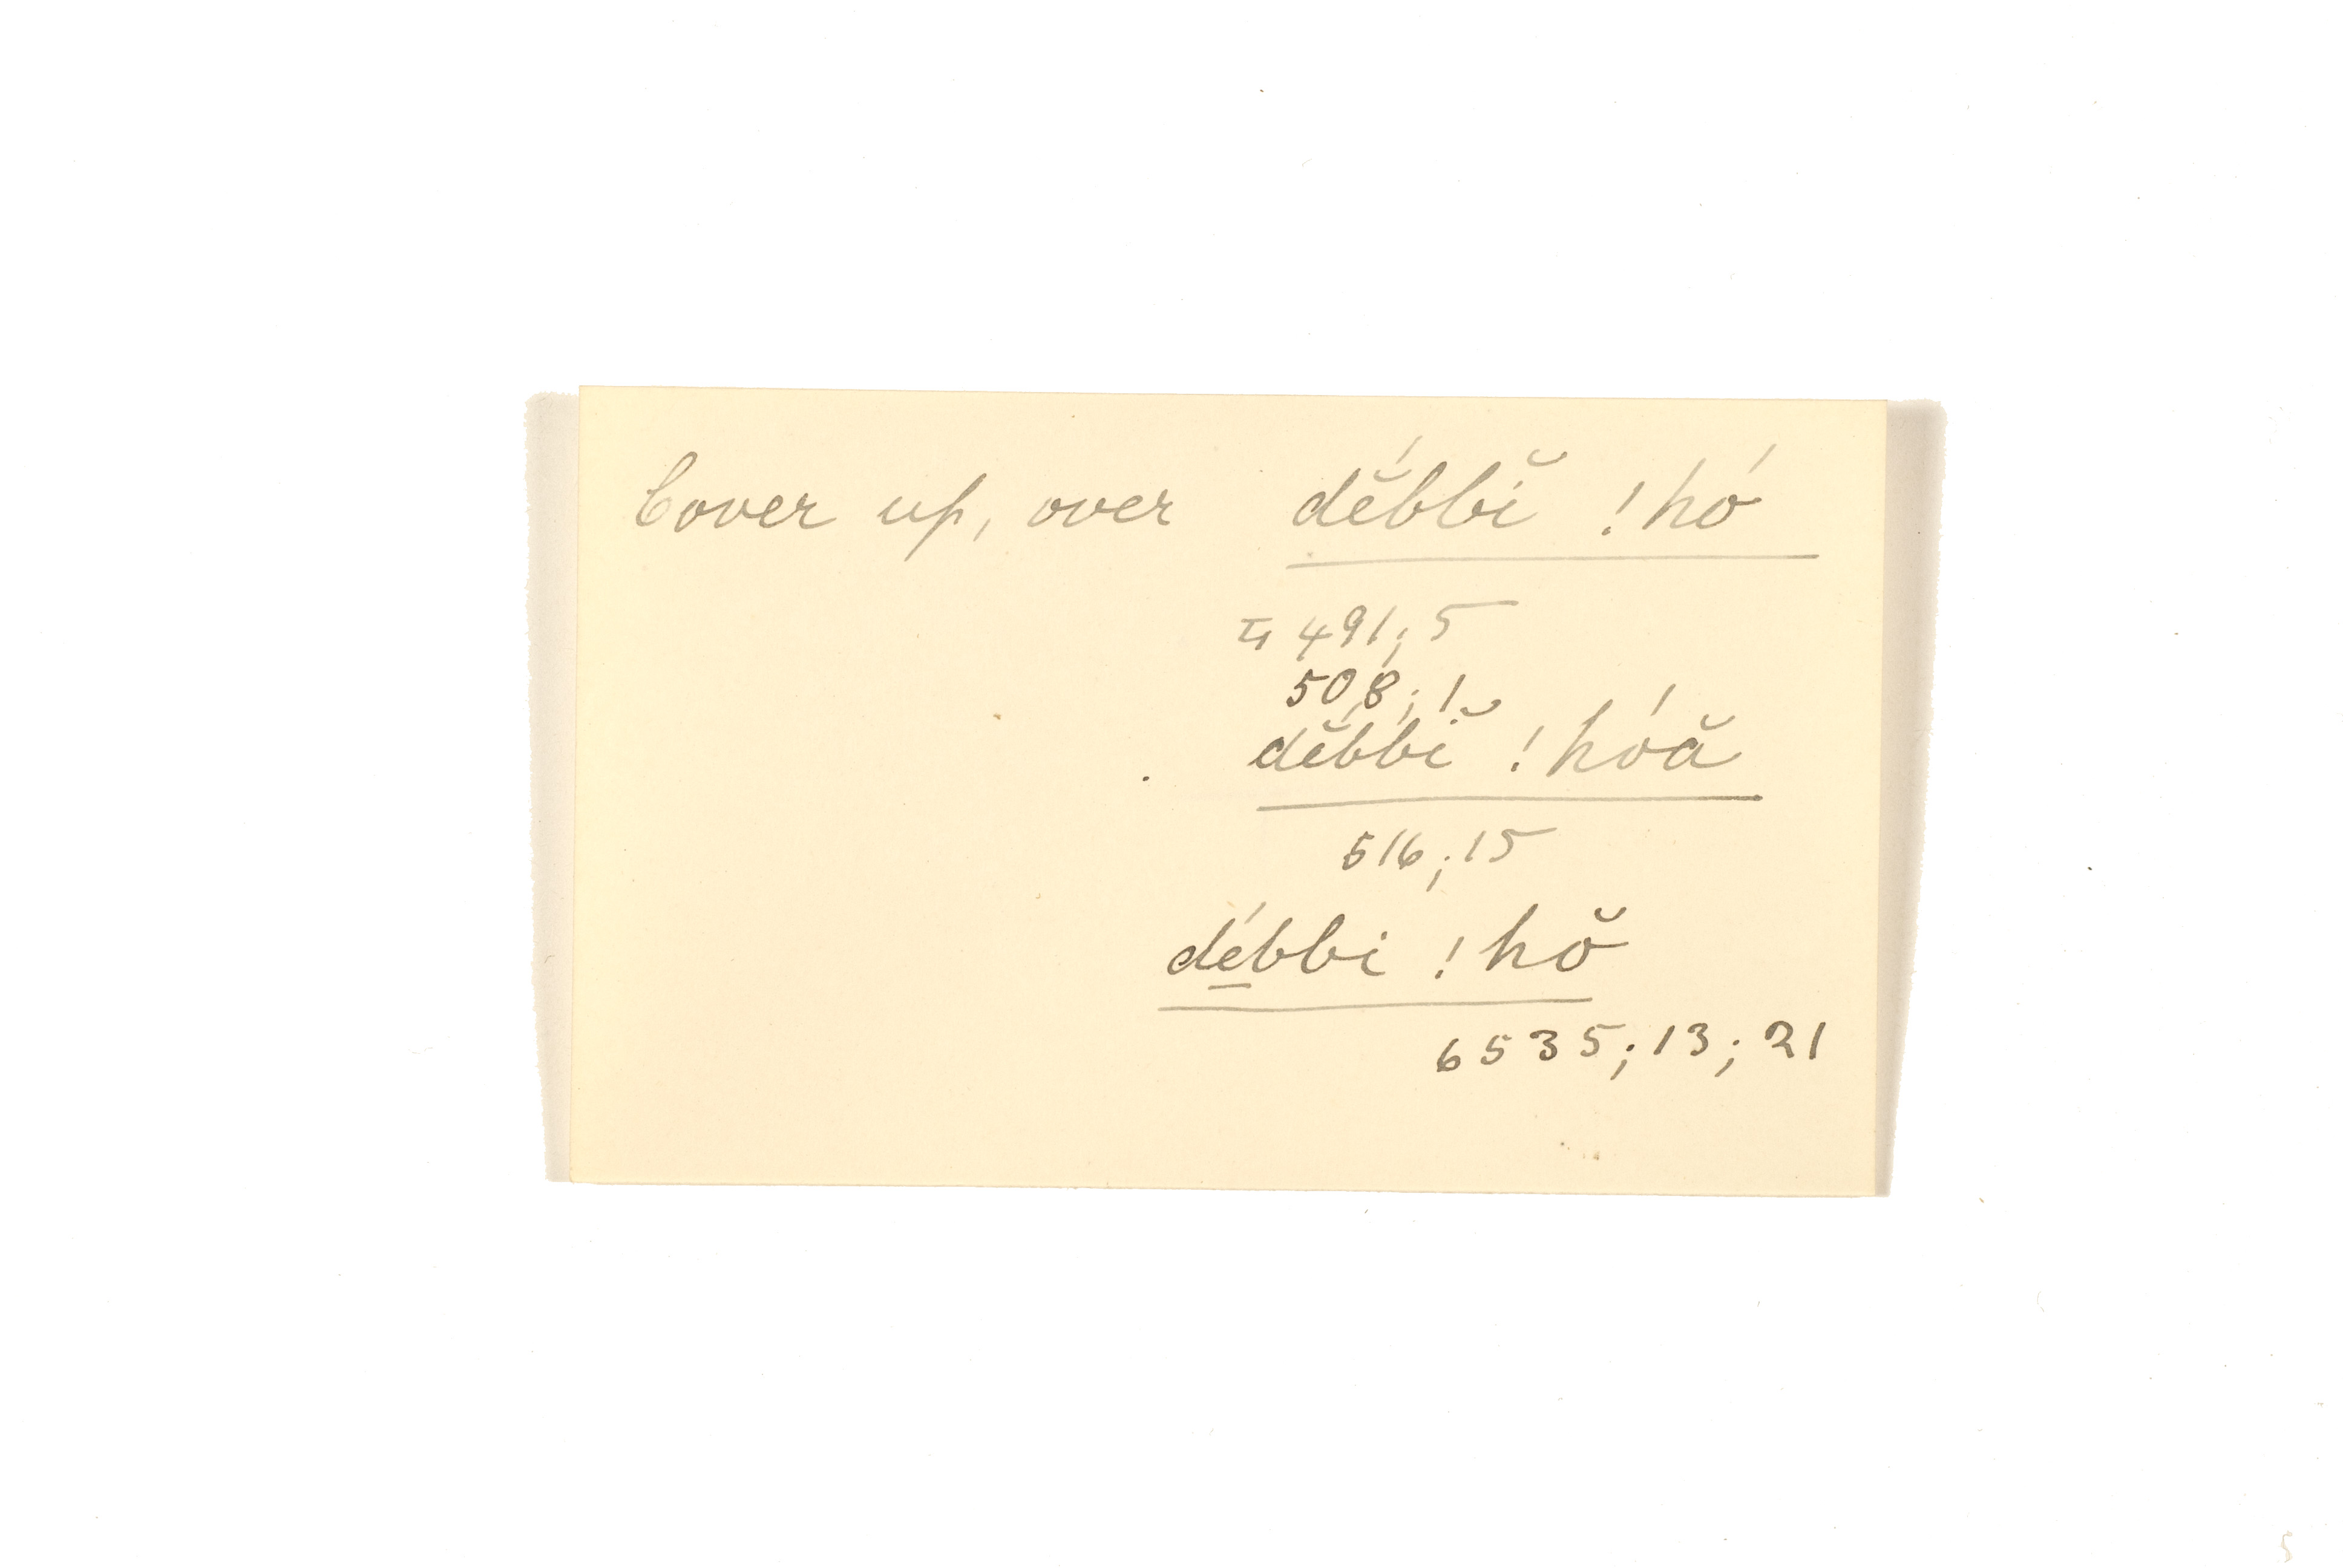 Cover up, over dĕ́bbĭ !hó
491; 5
508; 1.
dĕ́bbĭ !hóă
516; 15
dé̱bbi !hŏ
6535; 13; 21